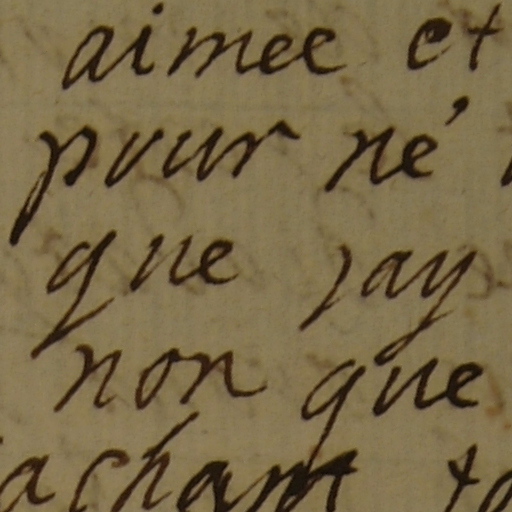 aimee et
pour né
que jay
non que
achant